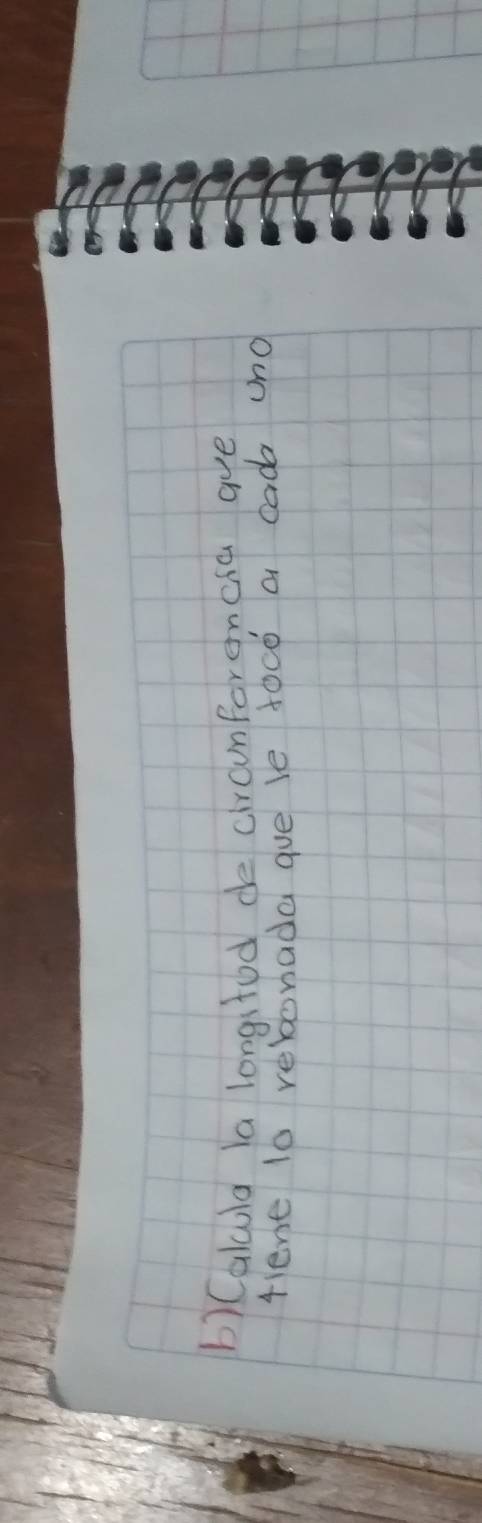 b) Calcula la longitud de circunferencia que
tiene la rebanada que le tocó a cada uno